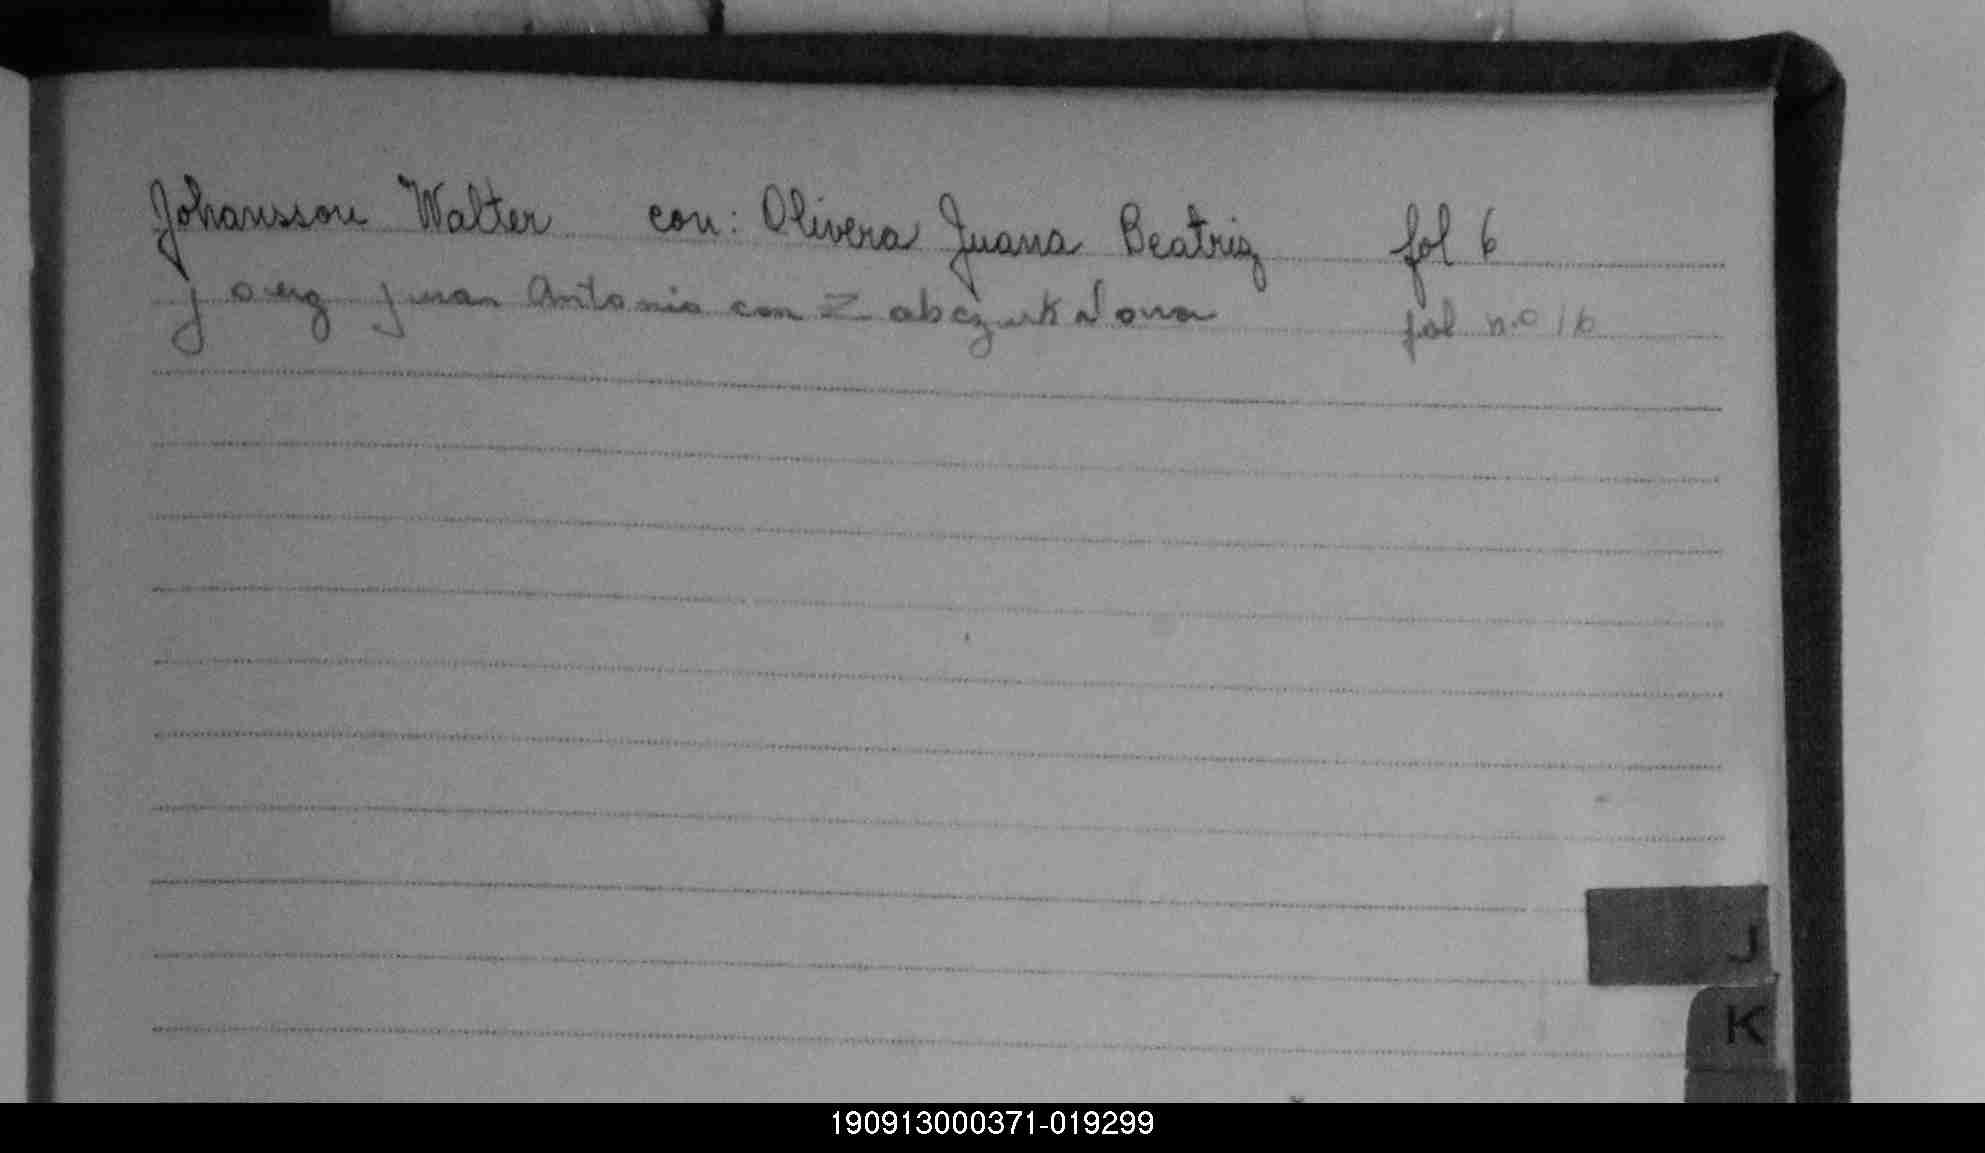 Johansson Walter con: Olivera Juana Beatriz fol 6
Juan Antonio con fol n.o 16
J
K
190913000371-019299